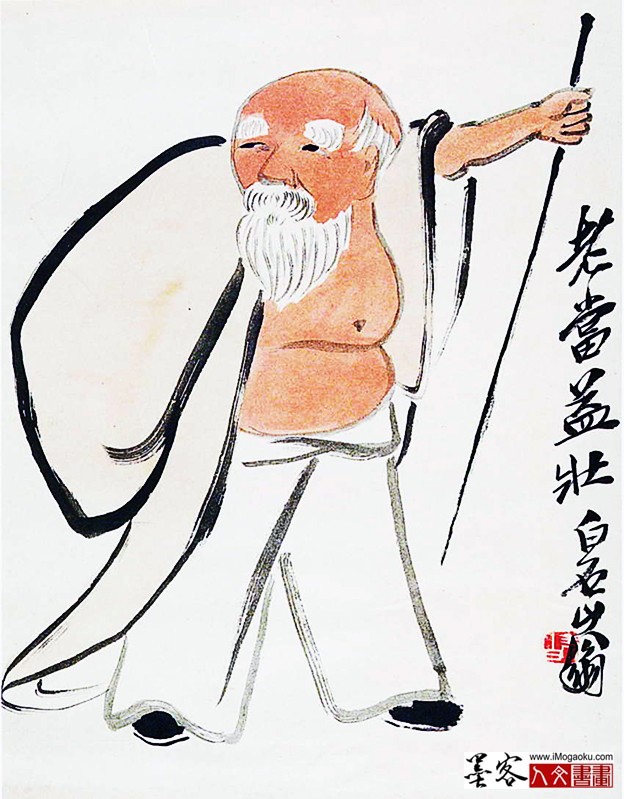 老當益壯 白石山翁
墨客
www.iMogaoku.com
人文書畫